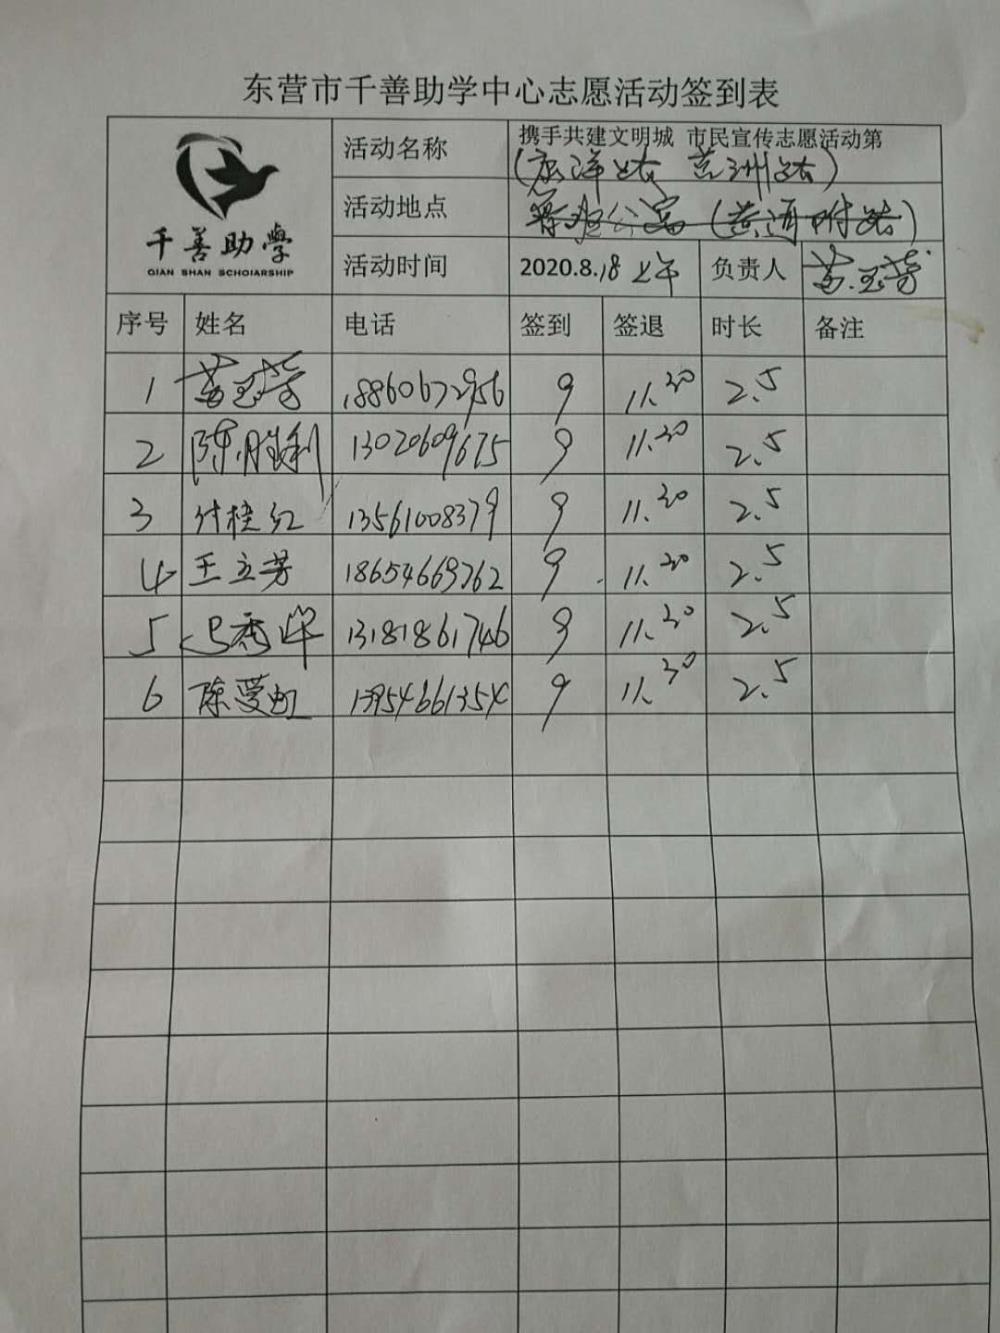 东营市千善助学中心志愿活动签到表
千善助学
QIAN SHAN SCHOIARSHIP
活动名称 携手共建文明城 市民宣传志愿活动第
活动地点
活动时间 2020.8.18 上午 负责人
序号 姓名 电话 签到 签退 时长 备注
1 18860672956 9 11.30 2.5
2 陈胜利 13020609675 9 11.30 2.5
3 付桂红 13561008379 9 11.30 2.5
4 王立芳 18654669762 9 11.30 2.5
5 13181861746 9 11.30 2.5
6 陈爱虹 13954661354 9 11.30 2.5